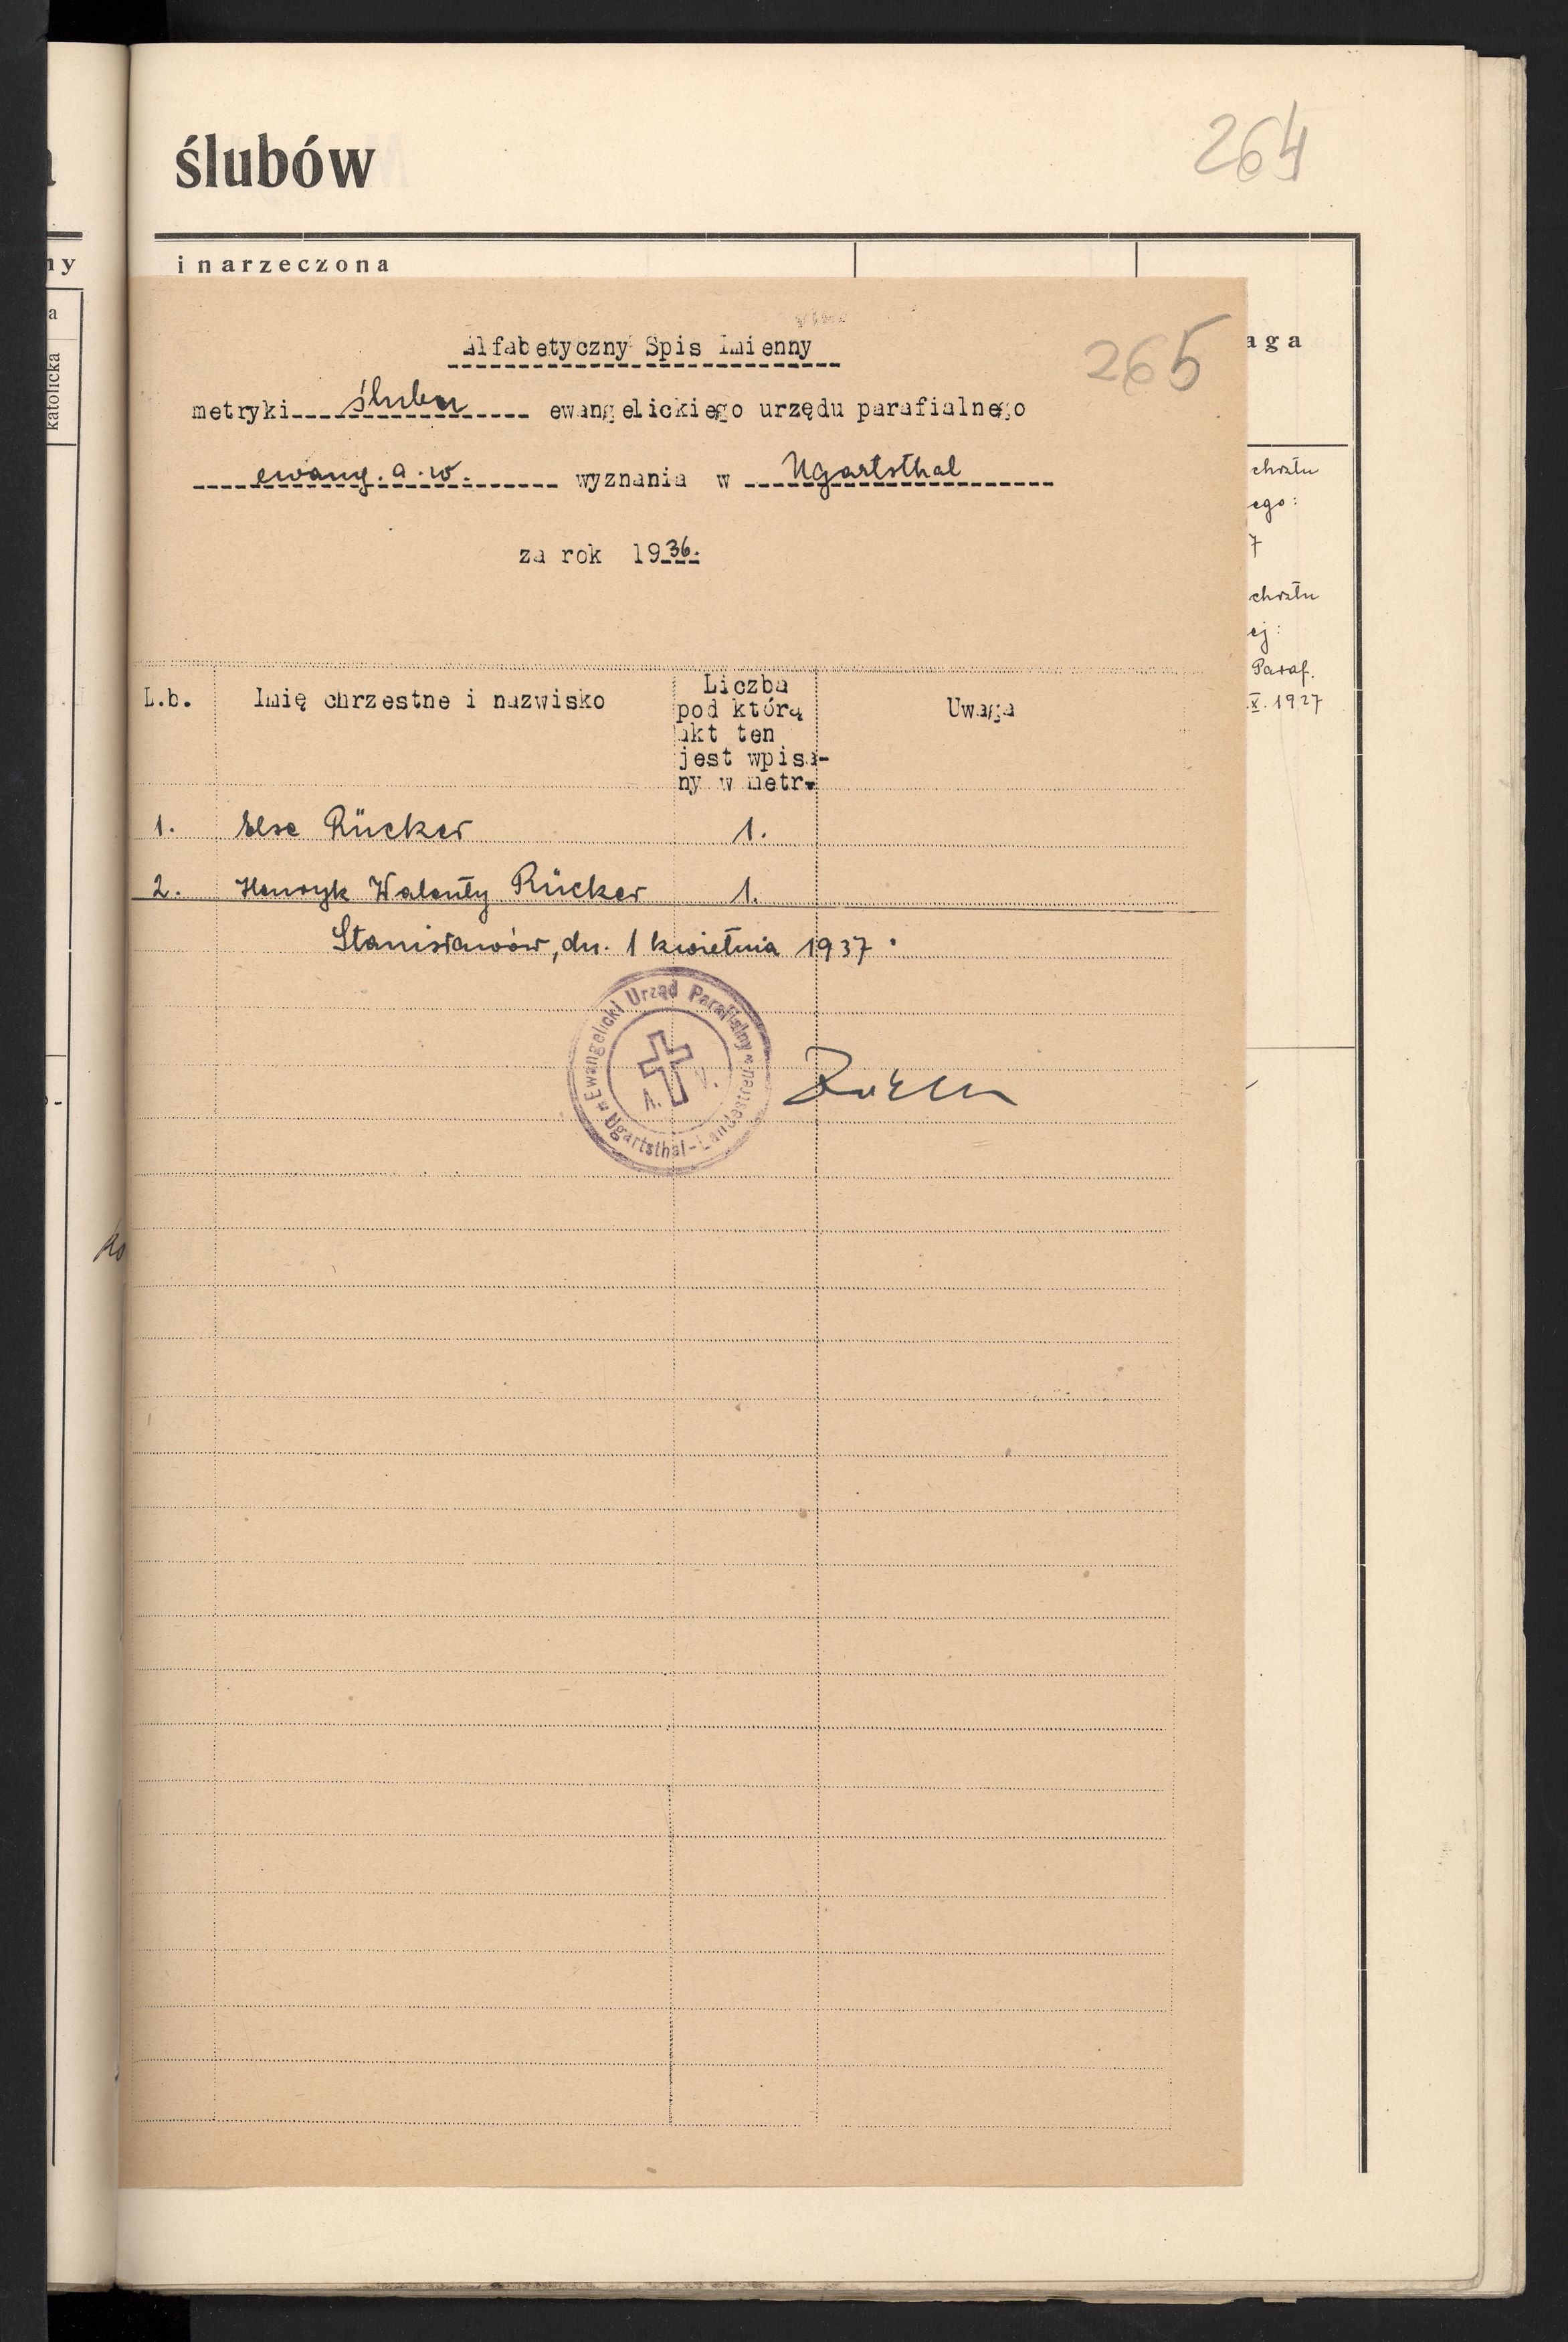 ślubów
264
ny
i narzeczona
a
katolicka
aga
265
Alfabetyczny Spis Imienny
metryki ślubu ewangelickiego urzędu parafialnego
ewang. a. w. wyznania w Ugartsthal
za rok 1936.
chrztu
ego:
7
chrztu
ej:
Paraf.
X. 1927
L.b.
Imię chrzestne i nazwisko
Liczba
pod którą
akt ten
jest wpisa-
ny w metr.
Uwaga
1. Else Rücker 1.
2. Henryk Walenty Rücker 1.
Stanisławów, dn. 1 kwietnia 1937.
Ewangelicki Urząd Parafialny
Ugartsthal-Landestreu
A. V.